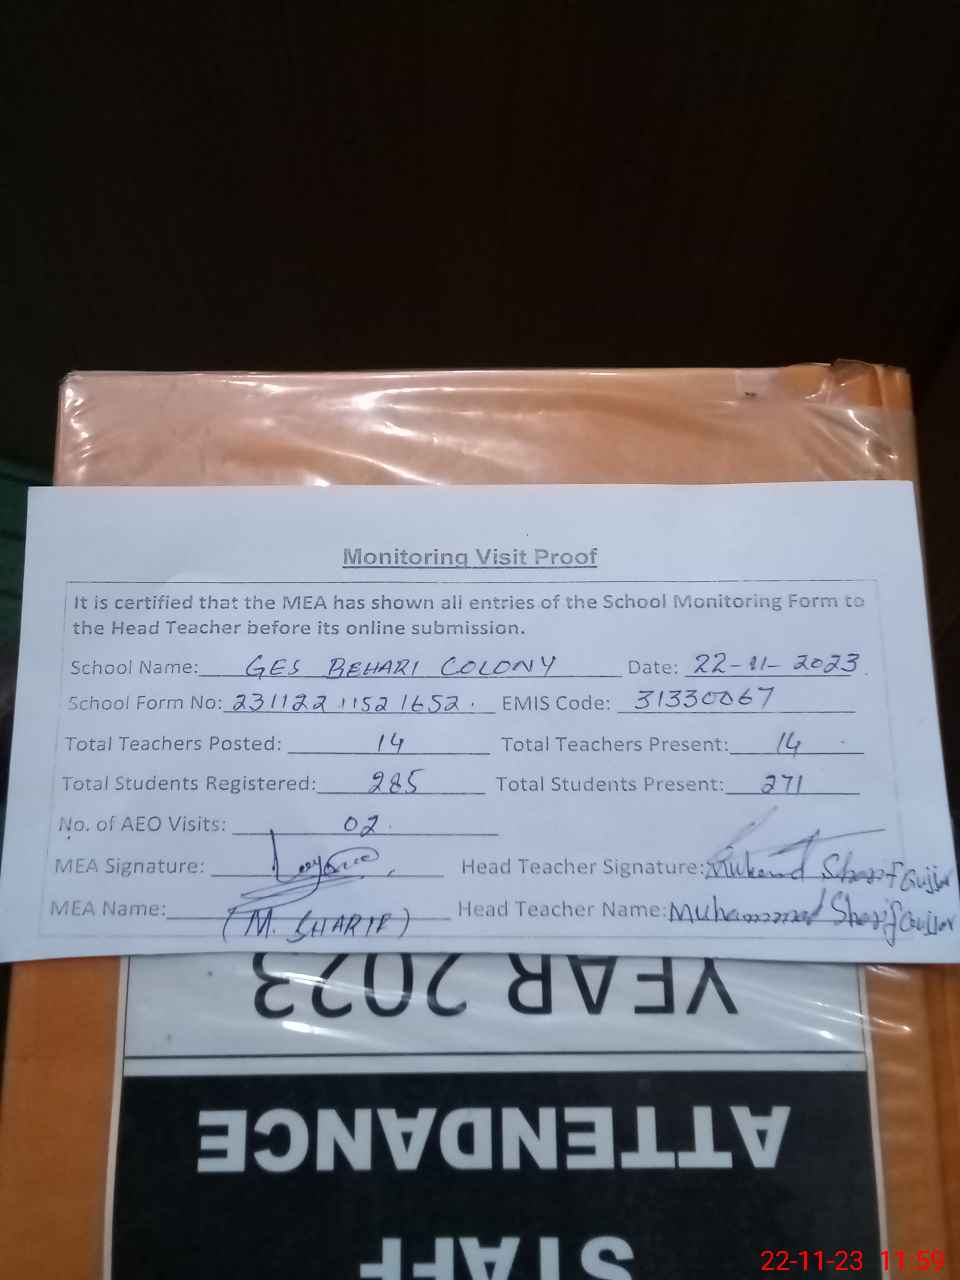 Monitoring Visit Proof
It is certified that the MEA has shown all entries of the School Monitoring Form to
the Head Teacher before its online submission.
School Name: GES BEHARI COLONY Date: 22-11-2023
School Form No: 231122 1152 1652. EMIS Code: 31330067
Total Teachers Posted: 14 Total Teachers Present: 14
Total Students Registered: 285 Total Students Present: 271
No. of AEO Visits: 02
MEA Signature: Head Teacher Signature:
MEA Name: (M. SHARIF) Head Teacher Name: Muhammad Sharif Gujjar
YEAR 2023
ATTENDANCE
STAFF
22-11-23 11:59